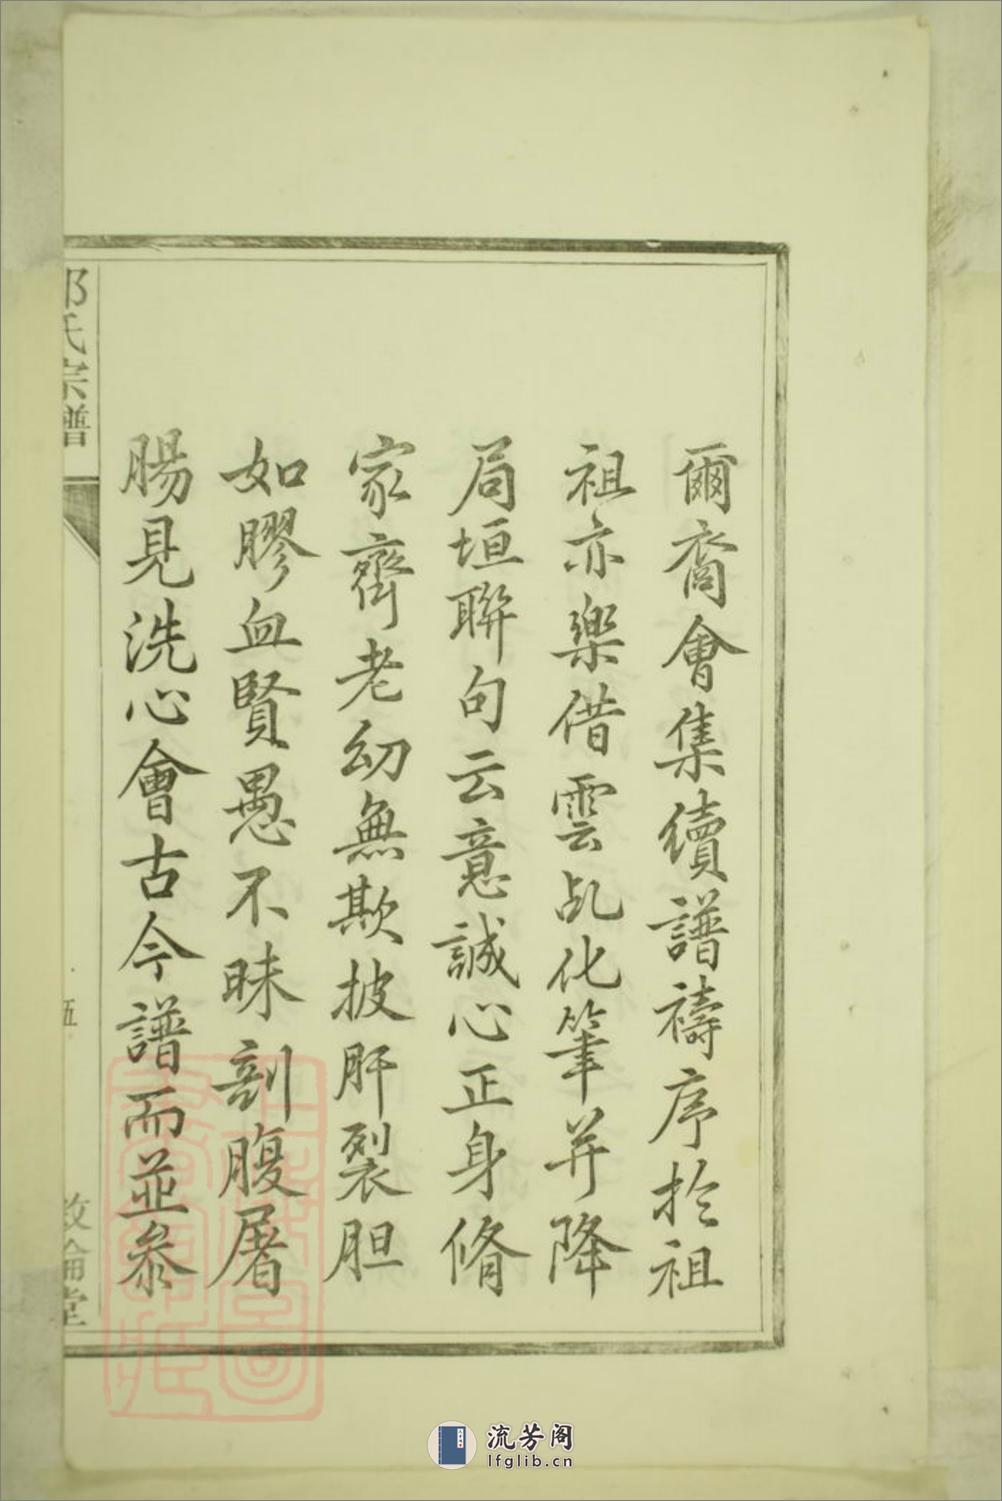 爾裔會集續譜禱序於祖
祖亦樂借雲乩化筆并降
局垣聯句云意誠心正身脩
家齊老幼無欺披肝裂胆
如膠血賢愚不昧剖腹屠
腸見洗心會古今譜而並叅
氏宗譜
五
敦倫堂
流芳阁
lfglib.cn